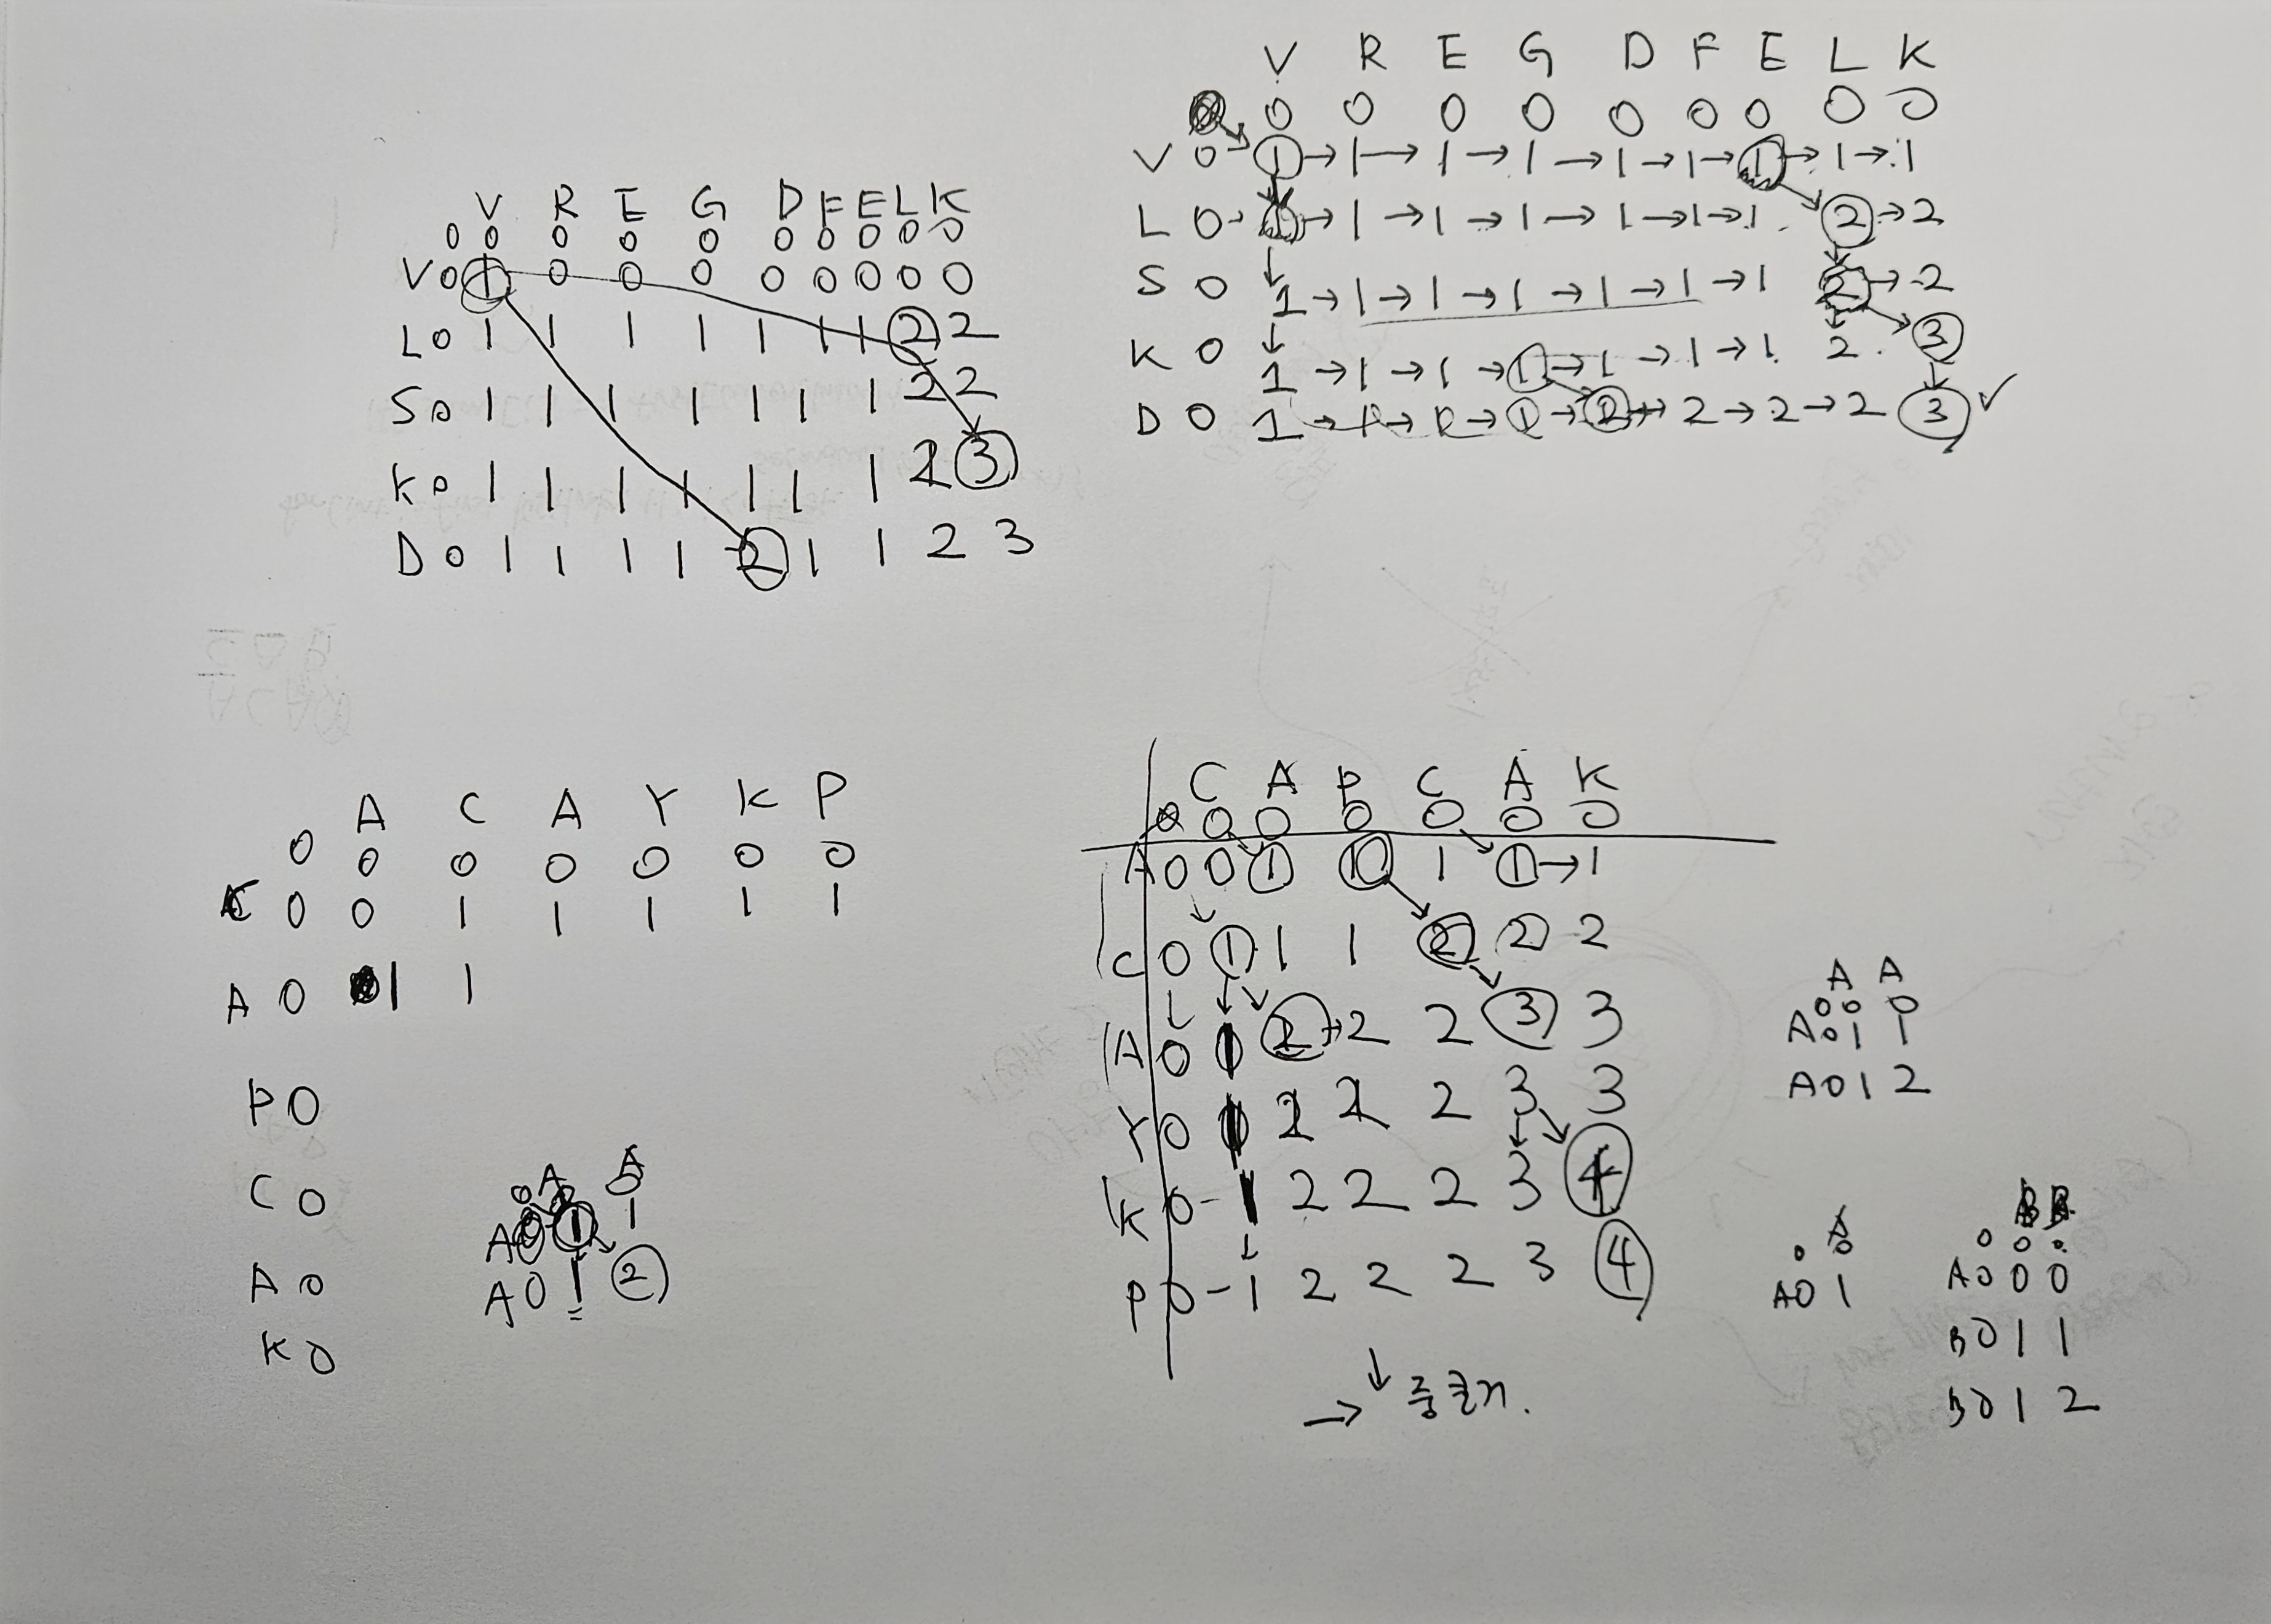 V R E G D F E L K
0 0 0 0 0 0 0 0 0 0
V 0 1 0 0 0 0 0 0 0 0
L 0 1 1 1 1 1 1 1 2 2
S 0 1 1 1 1 1 1 1 2 2
K 0 1 1 1 1 1 1 1 2 3
D 0 1 1 1 1 2 1 1 2 3
V R E G D F E L K
0 0 0 0 0 0 0 0 0
V 0 1 → 1 → 1 → 1 → 1 → 1 → 1 → 1 → 1
L 0 → 1 → 1 → 1 → 1 → 1 → 1 → 1 2 → 2
S 0 1 → 1 → 1 → 1 → 1 → 1 → 1 2 → 2
K 0 1 → 1 → 1 → 1 → 1 → 1 → 1 2 3
D 0 1 → 1 → 1 → 1 → 2 → 2 → 2 → 2 3 ✓
A C A Y K P
0 0 0 0 0 0 0
C 0 0 1 1 1 1 1
A 0 1 1
P 0
C 0
A 0
K 0
A A
0
A 0 1 1
A 0 1 2
C A P C A K
0 0 0 0 0 0 0
A 0 0 1 1 1 1 → 1
C 0 1 1 1 2 2 2
A 0 1 2 → 2 2 3 3
Y 0 1 2 2 2 3 3
K 0 - 1 2 2 2 3 4
P 0 - 1 2 2 2 3 4
↓
→
A A
0 0 0
A 0 1 1
A 0 1 2
A
0 0
A 0 1
B B
0 0 0
A 0 0 0
B 0 1 1
B 0 1 2